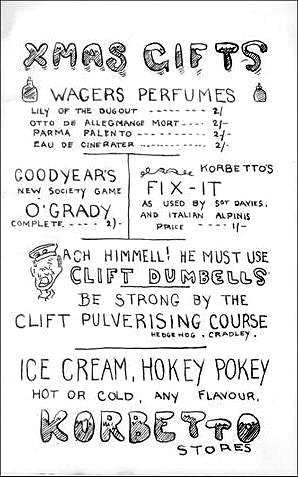 XMAS GIFTS
WAGERS PERFUMES
LILY OF THE DUGOUT ---------- 2/
OTTO DE ALLEGMANGE MORT ---- 2/-
PARMA PALENTO ------------ 2/-
EAU DE CINERATER ---------- 2/-
GOODYEAR'S
NEW SOCIETY GAME
O'GRADY
COMPLETE ---- 2/-
KORBETTO'S
FIX-IT
AS USED BY SGT DAVIES,
AND ITALIAN ALPINIS
PRICE ---- 1/-
ACH HIMMELL! HE MUST USE
CLIFT DUMBELLS
BE STRONG BY THE
CLIFT PULVERISING COURSE
HEDGEHOG. CRADLEY.
ICE CREAM, HOKEY POKEY
HOT OR COLD, ANY FLAVOUR.
KORBETTO
STORES